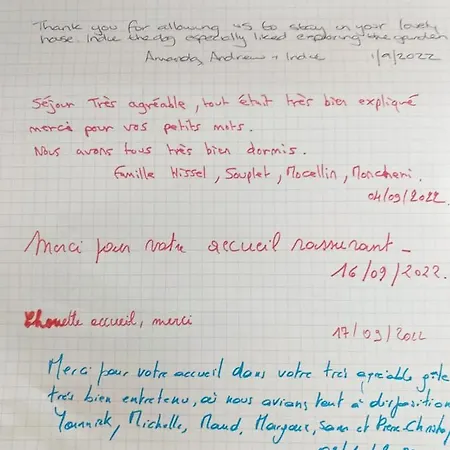 Thank you for allowing us to stay in your lovely
house. Indie the dog especially liked exploring the garden
Amanda, Andrew + Indie 1/9/2022
Séjour Très agréable, tout était très bien expliqué
merci pour vos petits mots.
Nous avons tous très bien dormis.
Famille Hissel, Souplet, Mocellin, Moncheni.
04/09/2022.
Merci pour votre accueil rassurant -
16/09/2022.
Chouette accueil, merci
17/09/2022
Merci pour votre accueil dans votre très agréable gîte
très bien entretenu, où nous avions tout à disposition
Yannick, Michelle, Maud, Margaux, Sam et Pierre-Christo